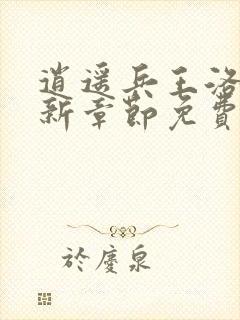 逍遥兵王洛
新章節免費
於慶泉